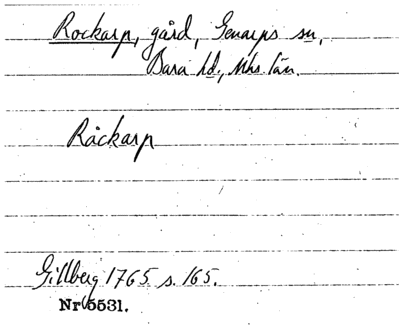 Rockarp, gård, Genarps sn,
Bara hd., Mhs. län.
Råckarp
Gillberg 1765 s. 165.
Nr 5531.